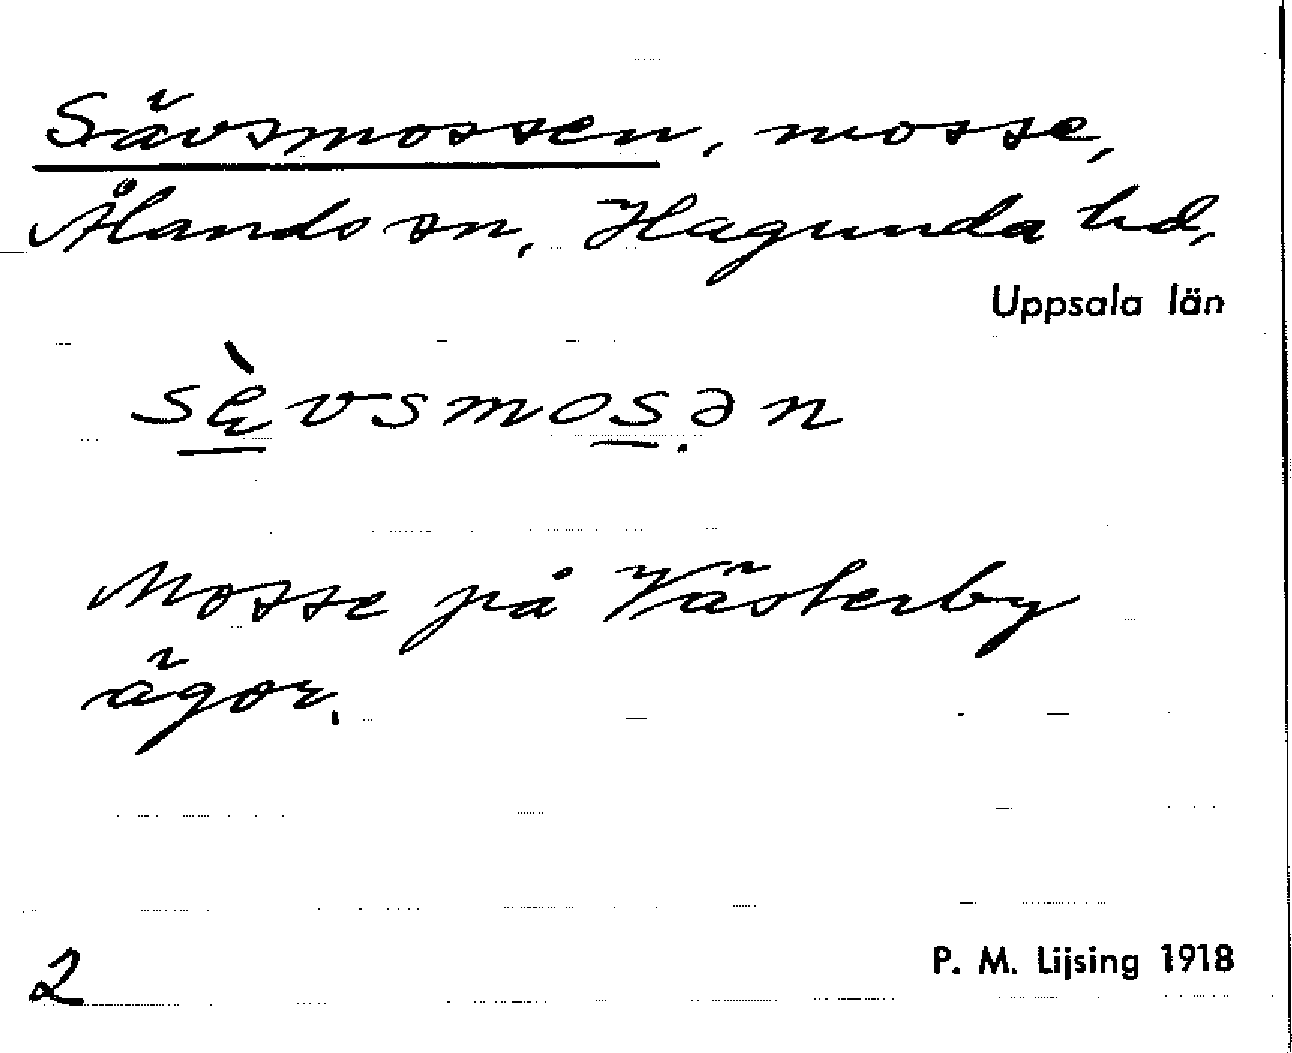 Sävsmossen, mosse,
Ålands sn, Hagunda hd,
Uppsala län
sę̀vsmosən
Mosse på Västerby
ägor.
2
P. M. Lijsing 1918